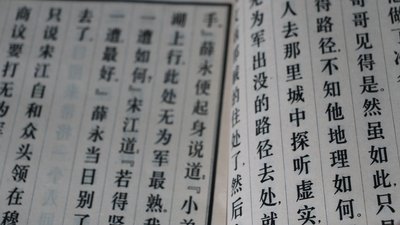 做了
哥哥见得是。然虽如此，只
得路径，不知他地理如何。
人去那里城中探听虚实，
无为军出没的路径去处，就
的住处了，然后
手。』薛永便起身说道：『小弟
湖上行，此处无为军最熟。我
一遭如何？』宋江道：『若得贤
一遭最好。』薛永当日别了
去了。
只说宋江自和众头领在穆
商议要打无为军